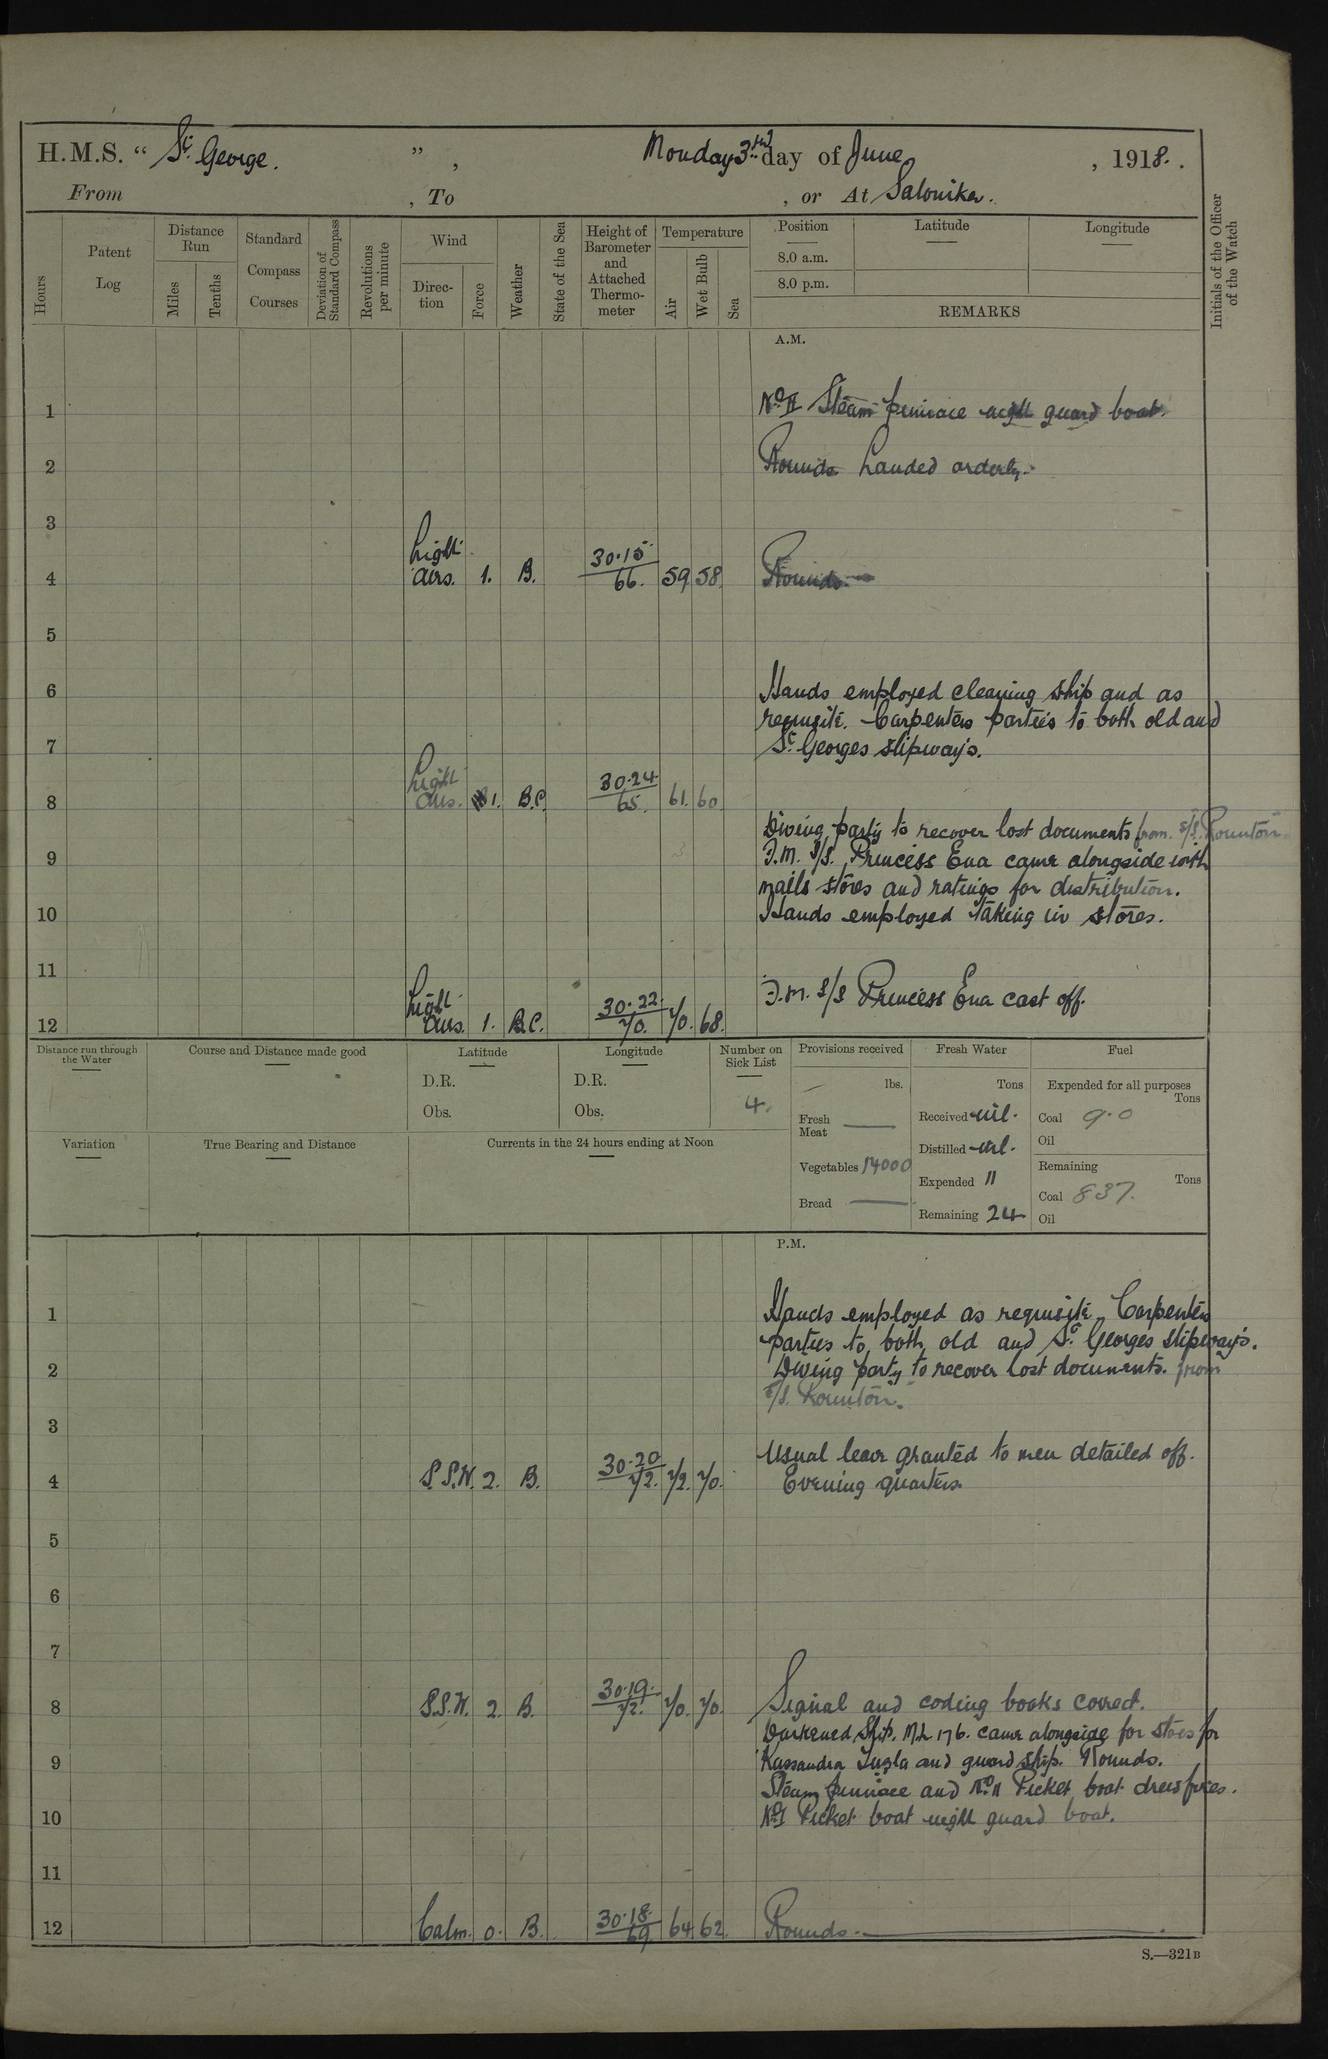 H.M.S. “ St. George. ” , Monday 3rd day of June , 1918.
From , To , or At Salonika.
Hours
Patent Log
Distance Run
Miles
Tenths
Standard Compass Courses
Deviation of Standard Compass
Revolutions per minute
Wind
Direction
Force
Weather
State of the Sea
Height of Barometer and Attached Thermometer
Temperature
Air
Wet Bulb
Sea
Position
Latitude
Longitude
8.0 a.m.
8.0 p.m.
REMARKS
Initials of the Officer of the Watch
A.M.
1 No. II Steam pinnace night guard boat.
2 Rounds landed orderly.
3
4 Light airs. 1. B. 30.15 66. 59 58 Rounds.
5
6 Hands employed cleaning ship and as
requisite. Carpenters parties to both old and
7 St. Georges slipways.
8 Light airs. 1. B.C. 30.24 65. 61. 60
Diving party to recover lost documents from S/S. Rounton.
9 F.M. S/S. Princess Ena came alongside with
mails stores and ratings for distribution.
10 Hands employed taking in stores.
11
F.M. S/S Princess Ena cast off.
12 Light airs. 1. B.C. 30.22. 70. 70. 68.
Distance run through the Water
Course and Distance made good
Latitude
D.R.
Obs.
Longitude
D.R.
Obs.
Number on Sick List
4.
Provisions received
lbs.
Fresh Meat
Vegetables 14000
Bread
Fresh Water
Tons
Received nil.
Distilled nil.
Expended 11
Remaining 24
Fuel
Expended for all purposes
Tons
Coal 9.0
Oil
Remaining
Tons
Coal 837.
Oil
Variation
True Bearing and Distance
Currents in the 24 hours ending at Noon
P.M.
1 Hands employed as requisite. Carpenters
parties to both old and St. Georges slipways.
2 Diving party to recover lost documents. from
S/S. Rounton.
3
Usual leave granted to men detailed off.
4 S.S.W. 2. B. 30.20 72. 72. 70. Evening quarters.
5
6
7
8 S.S.W. 2. B. 30.19. 72. 70. 70. Signal and coding books correct.
Darkened Ship. M.L. 176. came alongside for stores for
9 Kassandra Tuzla and guard ship. Rounds.
Steam pinnace and No. II Picket boat drew fires.
10 No. I Picket boat night guard boat.
11
12 Calm. 0. B. 30.18. 69. 64. 62. Rounds.
S.—321B